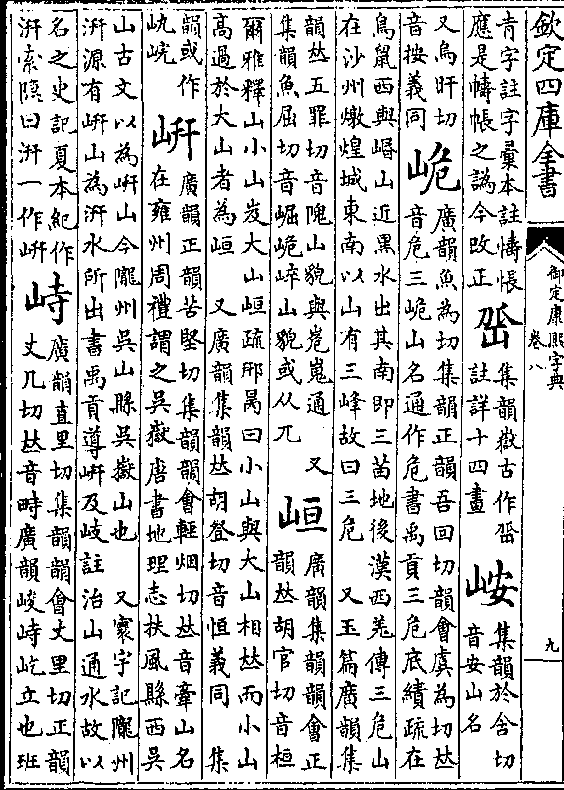 欽定四庫全書
御定康熙字典
卷八
九
青字註字彙本註幬帳
應是幬帳之譌今改正
㟉
集韻嶽古作㟉
註詳十四畫
峖
集韻於含切
音安山名
又烏旰切
音按義同
峗
廣韻魚為切集韻正韻吾回切韻會虞為切𠀤
音危三峗山名通作危書禹貢三危底績疏在
鳥鼠西與㟭山近黑水出其南即三苗地後漢西羌傳三危山
在沙州燉煌城東南以山有三峰故曰三危 又玉篇廣韻集
韻𠀤五罪切音隗山貌與峞嵬通 又
集韻魚屈切音崛峗崪山貌或从兀
峘
廣韻集韻韻會正
韻𠀤胡官切音桓
爾雅釋山小山岌大山峘疏邢昺曰小山與大山相𠀤而小山
高過於大山者為峘 又廣韻集韻𠀤胡登切音恒義同 集
韻或作
㟁峐
岍
廣韻正韻苦堅切集韻韻會輕烟切𠀤音牽山名
在雍州周禮謂之吳嶽唐書地理志扶風縣西吳
山古文以為岍山今隴州吳山縣吳嶽山也 又寰宇記隴州
汧源有岍山為汧水所出書禹貢導岍及岐註治山通水故以
名之史記夏本紀作
汧索隱曰汧一作岍
峙
廣韻直里切集韻韻會丈里切正韻
丈几切𠀤音時廣韻峻峙屹立也班